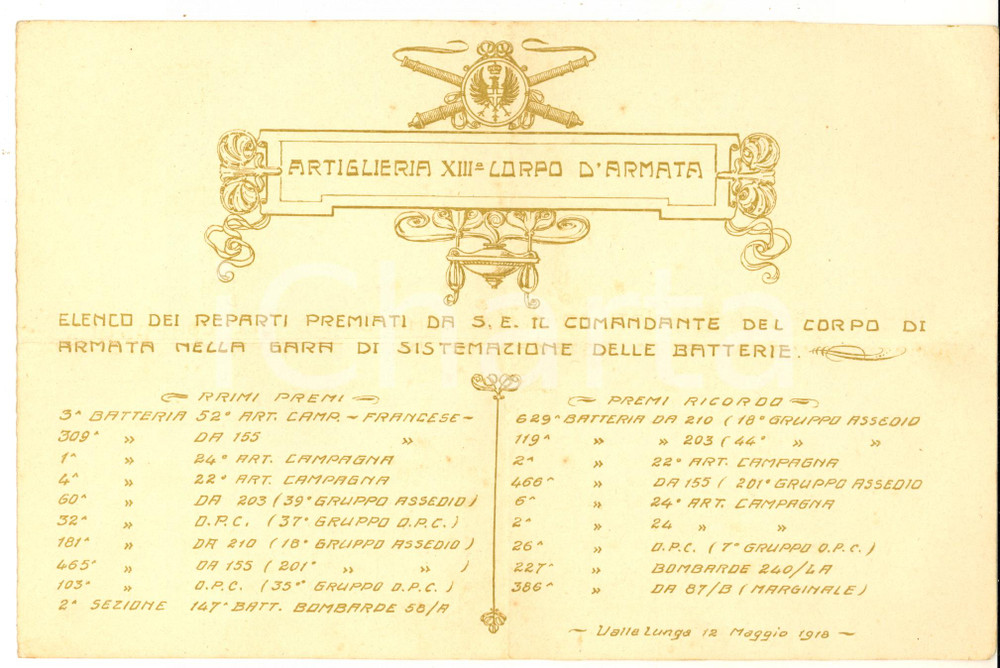 ARTIGLIERIA XIIIº CORPO D'ARMATA
ELENCO DEI REPARTI PREMIATI DA S. E. IL COMANDANTE DEL CORPO DI
ARMATA NELLA GARA DI SISTEMAZIONE DELLE BATTERIE.
RRIMI PREMI
3ª BATTERIA 52º ART. CAMP. - FRANCESE -
309ª » DA 155 »
1ª » 24º ART. CAMPAGNA
4ª » 22º ART. CAMPAGNA
60ª » DA 203 (39º GRUPPO ASSEDIO)
32ª » O.P.C. (37º GRUPPO O.P.C.)
181ª » DA 210 (18º GRUPPO ASSEDIO)
465ª » DA 155 (201º » »)
103ª » O.P.C. (35º GRUPPO O.P.C.)
2ª SEZIONE 147ª BATT. BOMBARDE 58/A
PREMI RICORDO
629ª BATTERIA DA 210 (18º GRUPPO ASSEDIO
119ª » » 203 (44º » »
2ª » 22º ART. CAMPAGNA
466ª » DA 155 (201º GRUPPO ASSEDIO
6ª » 24º ART. CAMPAGNA
2ª » 24 » »
26ª » O.P.C. (7º GRUPPO O.P.C.)
227ª » BOMBARDE 240/LA
386ª » DA 87/B (MARGINALE)
~ Valle Lunga 12 Maggio 1918 ~
iCharta